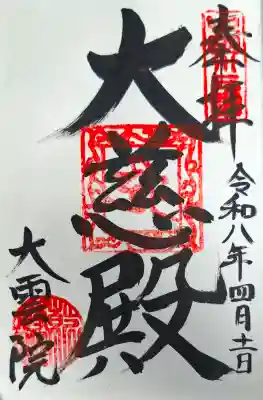 奉拝
令和八年四月十一日
大慈殿
大雲院